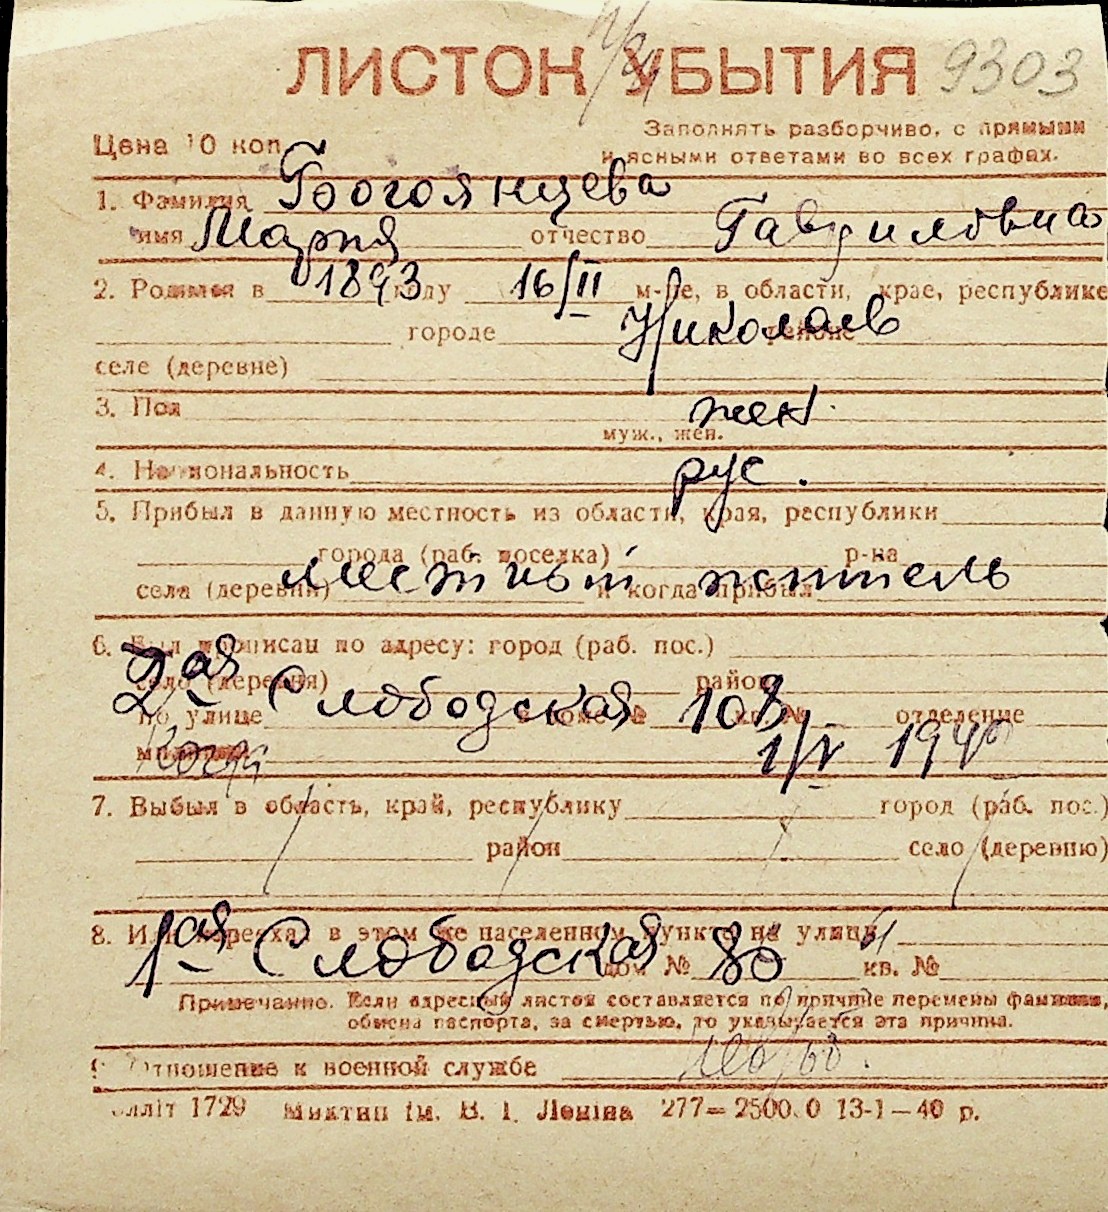 ЛИСТОК УБЫТИЯ 9303
Цена 10 коп.
Заполнять разборчиво, с прямыми
и ясными ответами во всех графах.
1. Фамилия Богоянцева
имя Мария отчество Гавриловна
2. Родился в 1893 году 16/II м-це, в области, крае, республике
городе Николаев районе
селе (деревне)
3. Пол жен.
муж., жен.
4. Национальность рус.
5. Прибыл в данную местность из области, края, республики
города (раб. поселка) р-на
местный житель
села (деревни) и когда прибыл
6. Был прописан по адресу: город (раб. пос.)
село (деревня) район
2ая Слободская 108
по улице в доме № кв. № отделение
милиции 1/V 1940
7. Выбыл в область, край, республику город (раб. пос.)
район село (деревню)
8. Или переехал в этом же населенном пункте на улицу
1ая Слободская дом № 80 кв. №
Примечание. Если адресный листок составляется по причине перемены фамилии,
обмена паспорта, за смертью, то указывается эта причина.
9. Отношение к военной службе
Миктип ім. В. І. Леніна 277—2500.0 13-1—40 р.